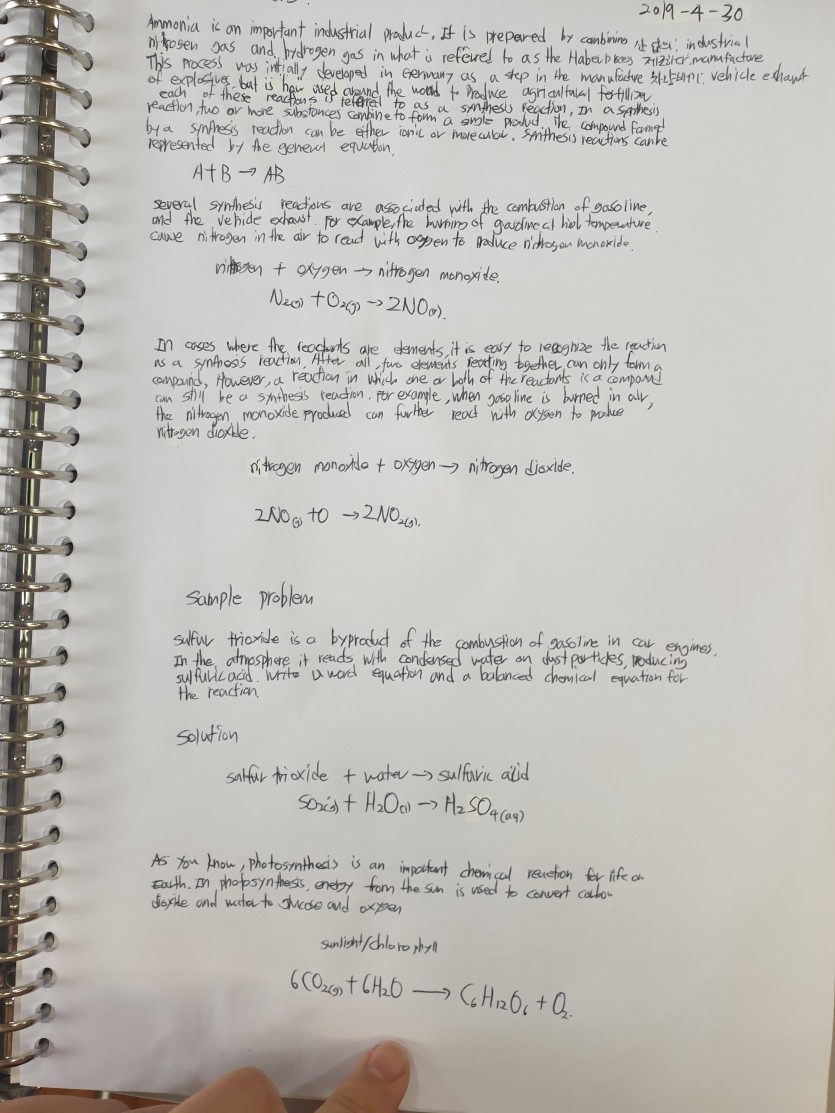 2019-4-30
Ammonia is an important industrial product. It is prepared by combining 산업의; industrial
nitrogen gas and hydrogen gas in what is refered to as the Haber process 제조하다; manufacture
This process was initially developed in Germany as a step in the manufacture vehicle exhaust
of explosives, but is now used around the world to produce agricultural fertilizer
each of these reactions is refered to as a synthesis reaction, In a synthesis
reaction, two or more substances combine to form a single product, The compound formed
by a synthesis reaction can be either ionic or molecular. Synthesis reactions can be
represented by the general equation.
A+B → AB
Several synthesis reactions are associated with the combustion of gasoline,
and the vehide exhaust. For example, the burning of gasoline at high temperature
cause nitrogen in the air to react with oxygen to produce nitrogen monoxide.
nitrogen + oxygen → nitrogen monoxide.
N2(g) + O2(g) → 2NO(g).
In cases where the reactants are elements, it is easy to recognize the reaction
as a synthesis reaction, After all, two elements reacting together can only form a
compound, However, a reaction in which one or both of the reactants is a compound
can still be a synthesis reaction. For example, when gasoline is burned in air,
the nitrogen monoxide produced can further react with oxygen to produe
nitrogen dioxide.
nitrogen monoxide + oxygen → nitrogen dioxide.
2NO(g) + O → 2NO2(g).
Sample problem
sulfur trioxide is a byproduct of the combustion of gasoline in car engines.
In the atmosphere it reacts with condensed water on dust particles, producing
sulfuric acid. Write a word equation and a balanced chemical equation for
the reaction.
Solution
sulfur trioxide + water → sulfuric acid
+ H2O(l) → H2SO4(aq)
As you know, photosynthesis is an important chemical reaction for life on
Earth. In photosynthesis, energy from the sun is used to convert carbon
dioxide and water to glucose and oxygen
sunlight/chlorophyll
6CO2(g) + 6H2O → C6H12O6 + O2.